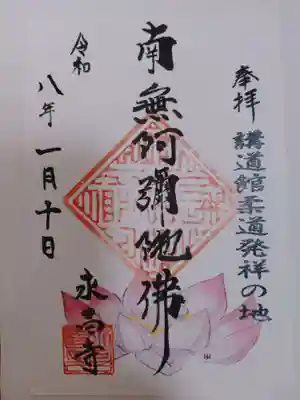 奉拝
講道館柔道発祥の地
南無阿彌陀佛
永昌寺
令和
八年一月十日